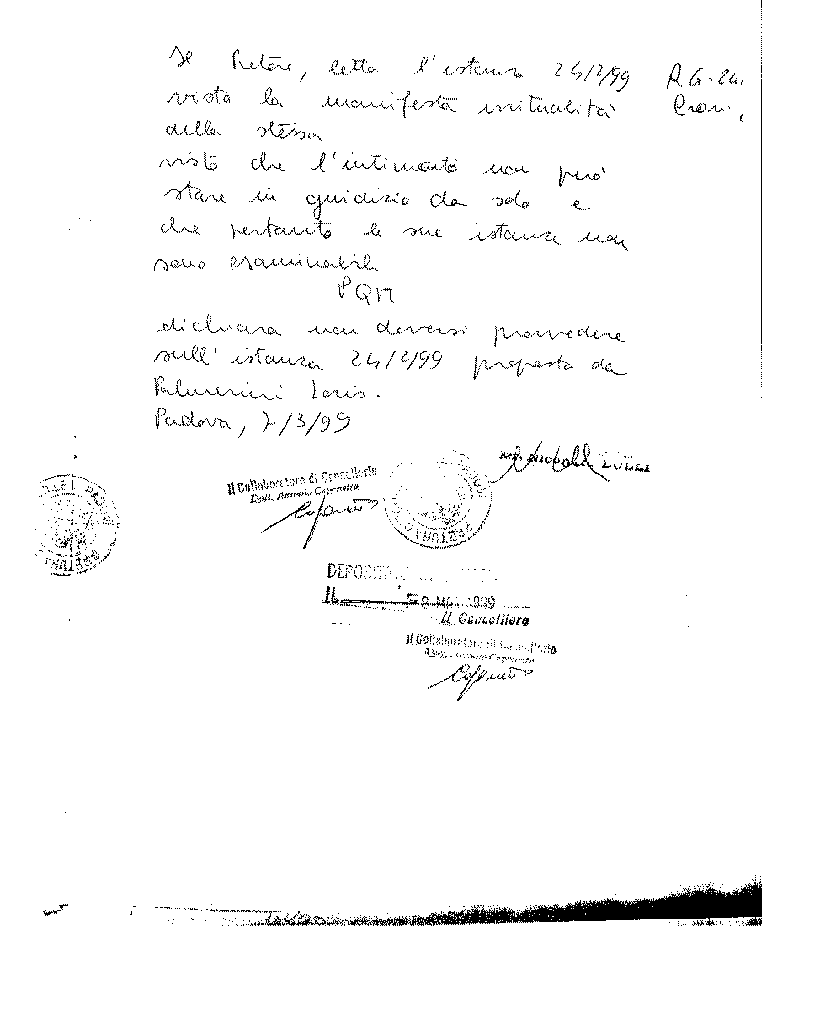 Il Pretore, letta l'istanza 24/2/99
vista la manifesta irritualità
della stessa
visto che l'intimato non può
stare in giudizio da solo e
che pertanto le sue istanze non
sono esaminabili
PQM
dichiara non doversi provvedere
sull'istanza 24/2/99 proposta da
Palmerini Loris.
Padova, 2/3/99
Il Collaboratore di Cancelleria
DEPOSITATO
IL 1999
Il Cancelliere
Il Collaboratore di Cancelleria